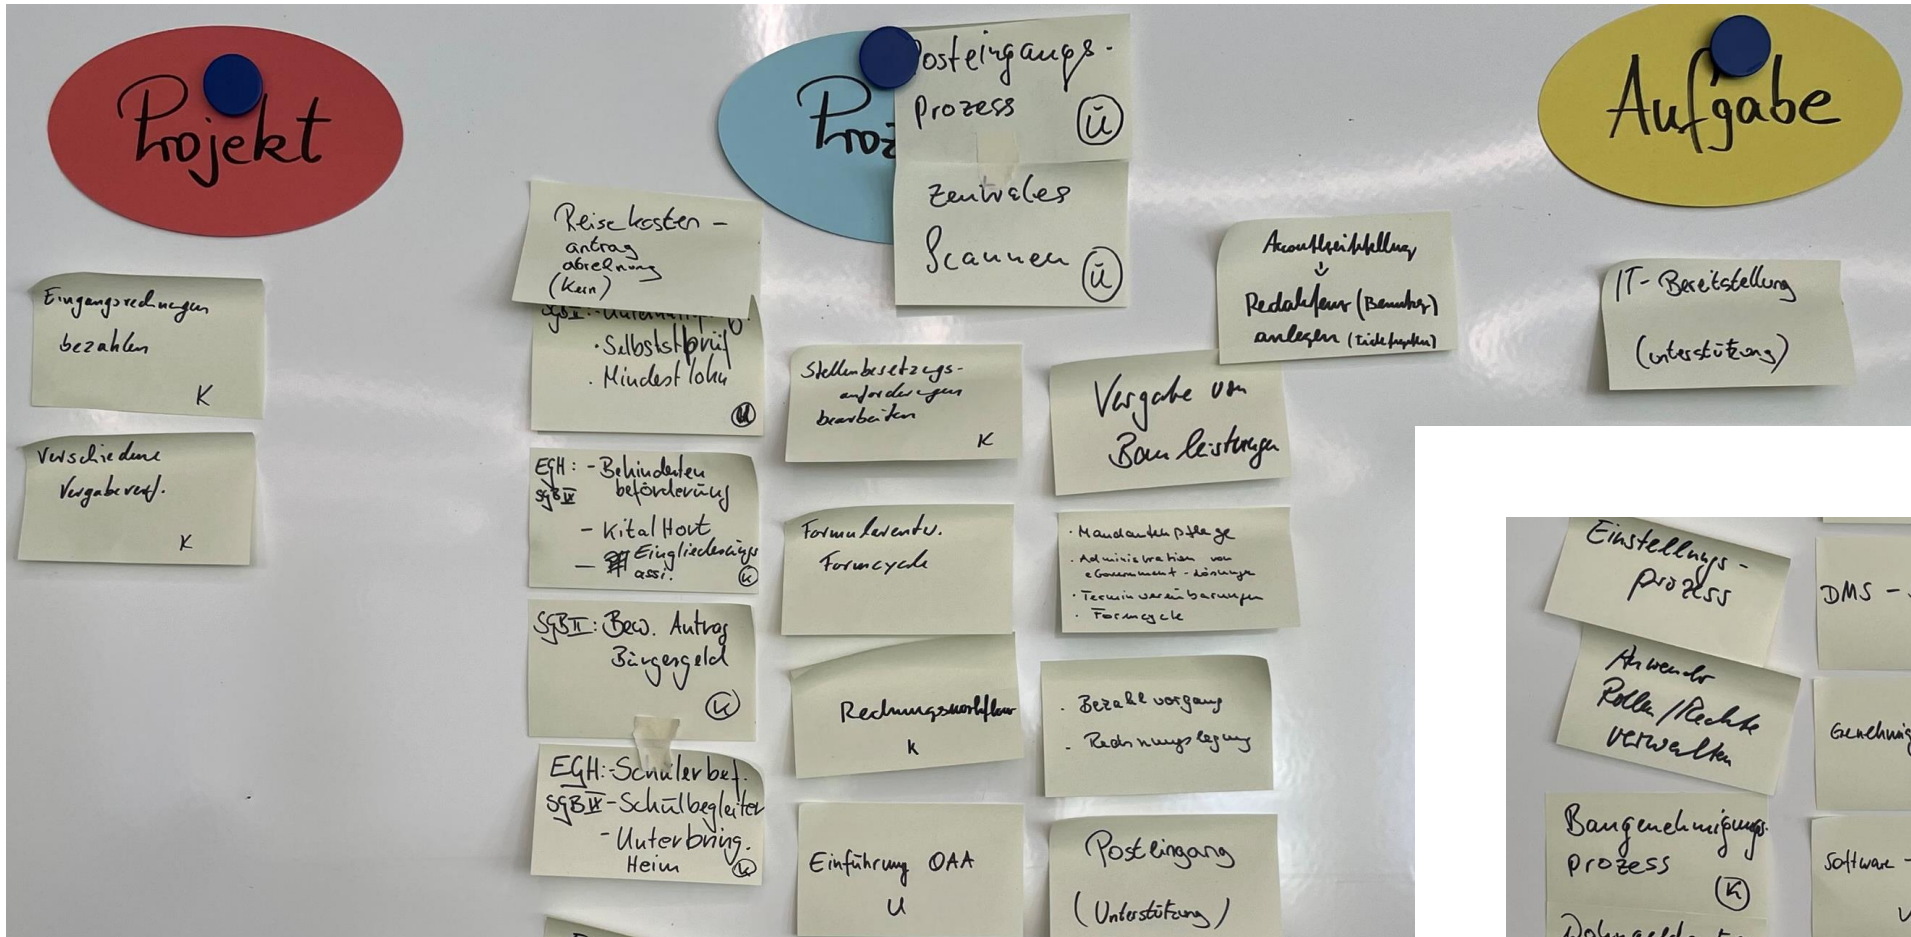 Projekt
Eingangsrechnungen
bezahlen
K
Verschiedene
Vergabeverf.
K
Reisekosten-
antrag
abrechnung
(Kern)
SGB II:
· Selbststprüf
· Mindestlohn
EGH: - Behinderten
SGB IX beförderung
- Kita/Hort
- Eingliederungs
assi.
K
SGB II: Bew. Antrag
Bürgergeld
K
EGH: - Schülerbef.
SGB IX - Schulbegleiter
- Unterbring.
Heim
K
Proz
Posteingangs-
prozess
Ü
Zentrales
Scannen
Ü
Stellenbesetzungs-
anforderungen
bearbeiten
K
Formularentw.
Formcycle
Rechnungsworkflow
K
Einführung OAA
U
Redakteur (Benutzer)
anlegen
Vergabe von
Bauleistungen
· Mandantenpflege
· Administration von
eGovernment-Lösungen
· Terminvereinbarungen
· Formcycle
· Bezahlvorgang
- Rechnungslegung
Posteingang
(Unterstützung)
Aufgabe
IT-Bereitstellung
(Unterstützung)
Einstellungs-
prozess
Anwender
Rollen/Rechte
verwalten
Baugenehmigungs-
prozess
K
DMS -
Genehmig
Software -